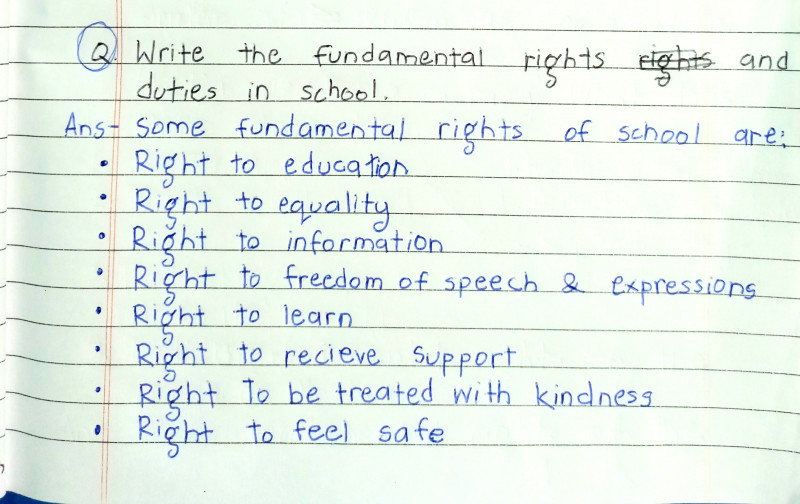 Q. Write the fundamental rights rights and
duties in school.
Ans- Some fundamental rights of school are:
• Right to education
• Right to equality
• Right to information
• Right to freedom of speech & expressions
• Right to learn
• Right to recieve support
• Right To be treated with kindness
• Right to feel safe